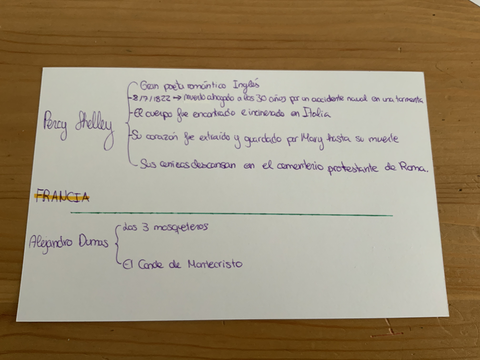 Percy Shelley
Gran poeta romántico Inglés
-8/7/1822 → muerto ahogado a los 30 años por un accidente naval en una tormenta
-El cuerpo fue encontrado e incinerado en Italia
-Su corazón fue extraído y guardado por Mary hasta su muerte
-Sus cenizas descansan en el cementerio protestante de Roma.
FRANCIA
Alejandro Dumas
-Los 3 mosqueteros
-El Conde de Montecristo